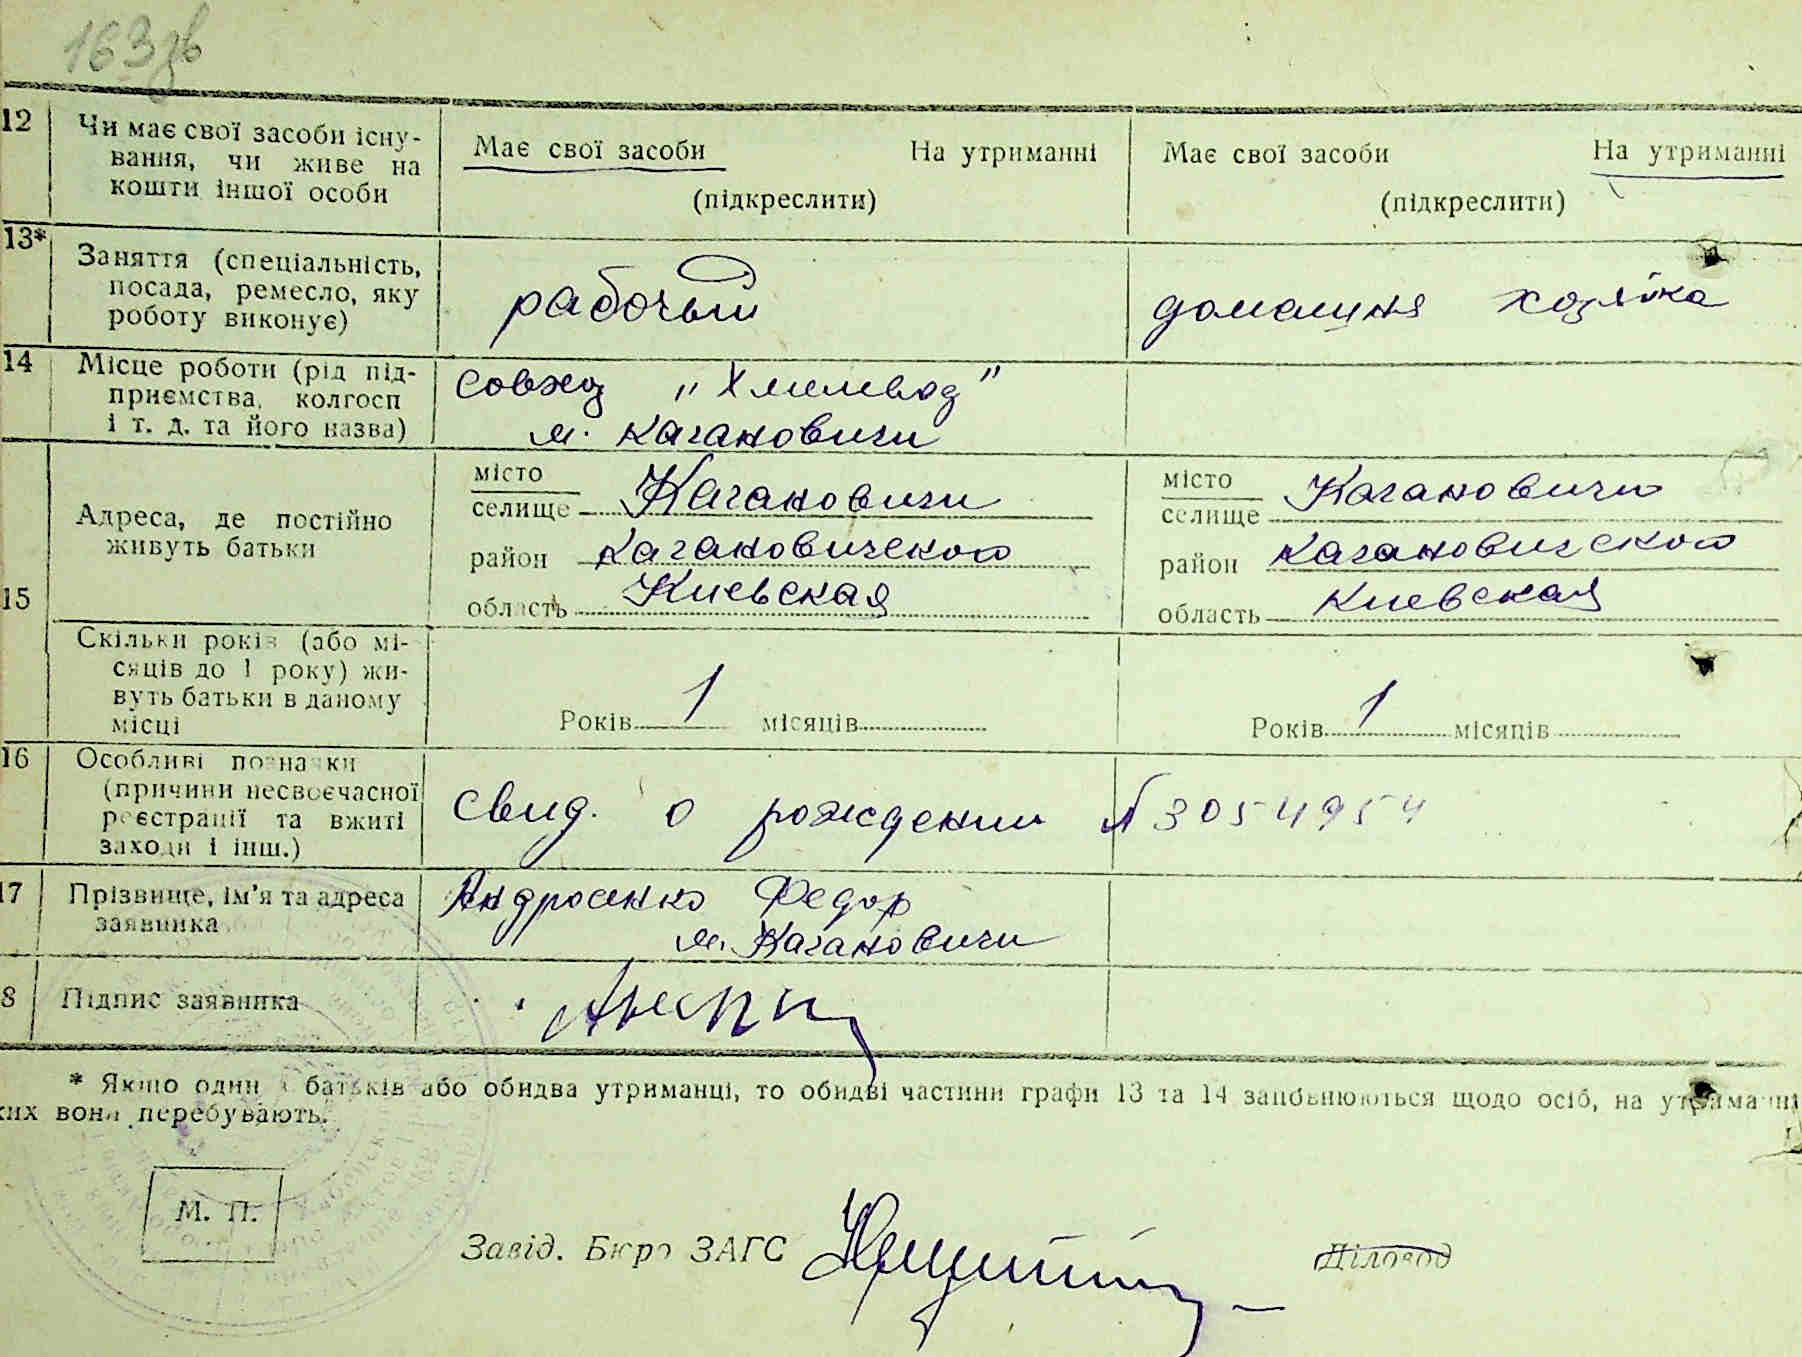 163зв
12
Чи має свої засоби існу-
вання, чи живе на
кошти іншої особи
Має свої засоби На утриманні
(підкреслити)
Має свої засоби На утриманні
(підкреслити)
13*
Заняття (спеціальність,
посада, ремесло, яку
роботу виконує)
рабочый
домашня хозяйка
14
Місце роботи (рід під-
приємства, колгосп
і т. д. та його назва)
совхоз „Хмилевод"
м. Кагановичи
15
Адреса, де постійно
живуть батьки
місто
селище Кагановичи
район Кагановичского
область Киевская
місто
селище Кагановичи
район Кагановичского
область Киевская
Скільки років (або мі-
сяців до 1 року) жи-
вуть батьки в даному
місці
Років 1 місяців
Років 1 місяців
16
Особливі позначки
(причини несвоєчасної
реєстрації та вжиті
заходи і інш.)
свид. о рождении № 3054954
17
Прізвище, ім'я та адреса
заявника
Федор
м. Кагановичи
8
Підпис заявника
* Якщо один з батьків або обидва утриманці, то обидві частини графи 13 та 14 заповнюються щодо осіб, на утриманні
ких вони перебувають.
М. П.
Завід. Бюро ЗАГС
Діловод